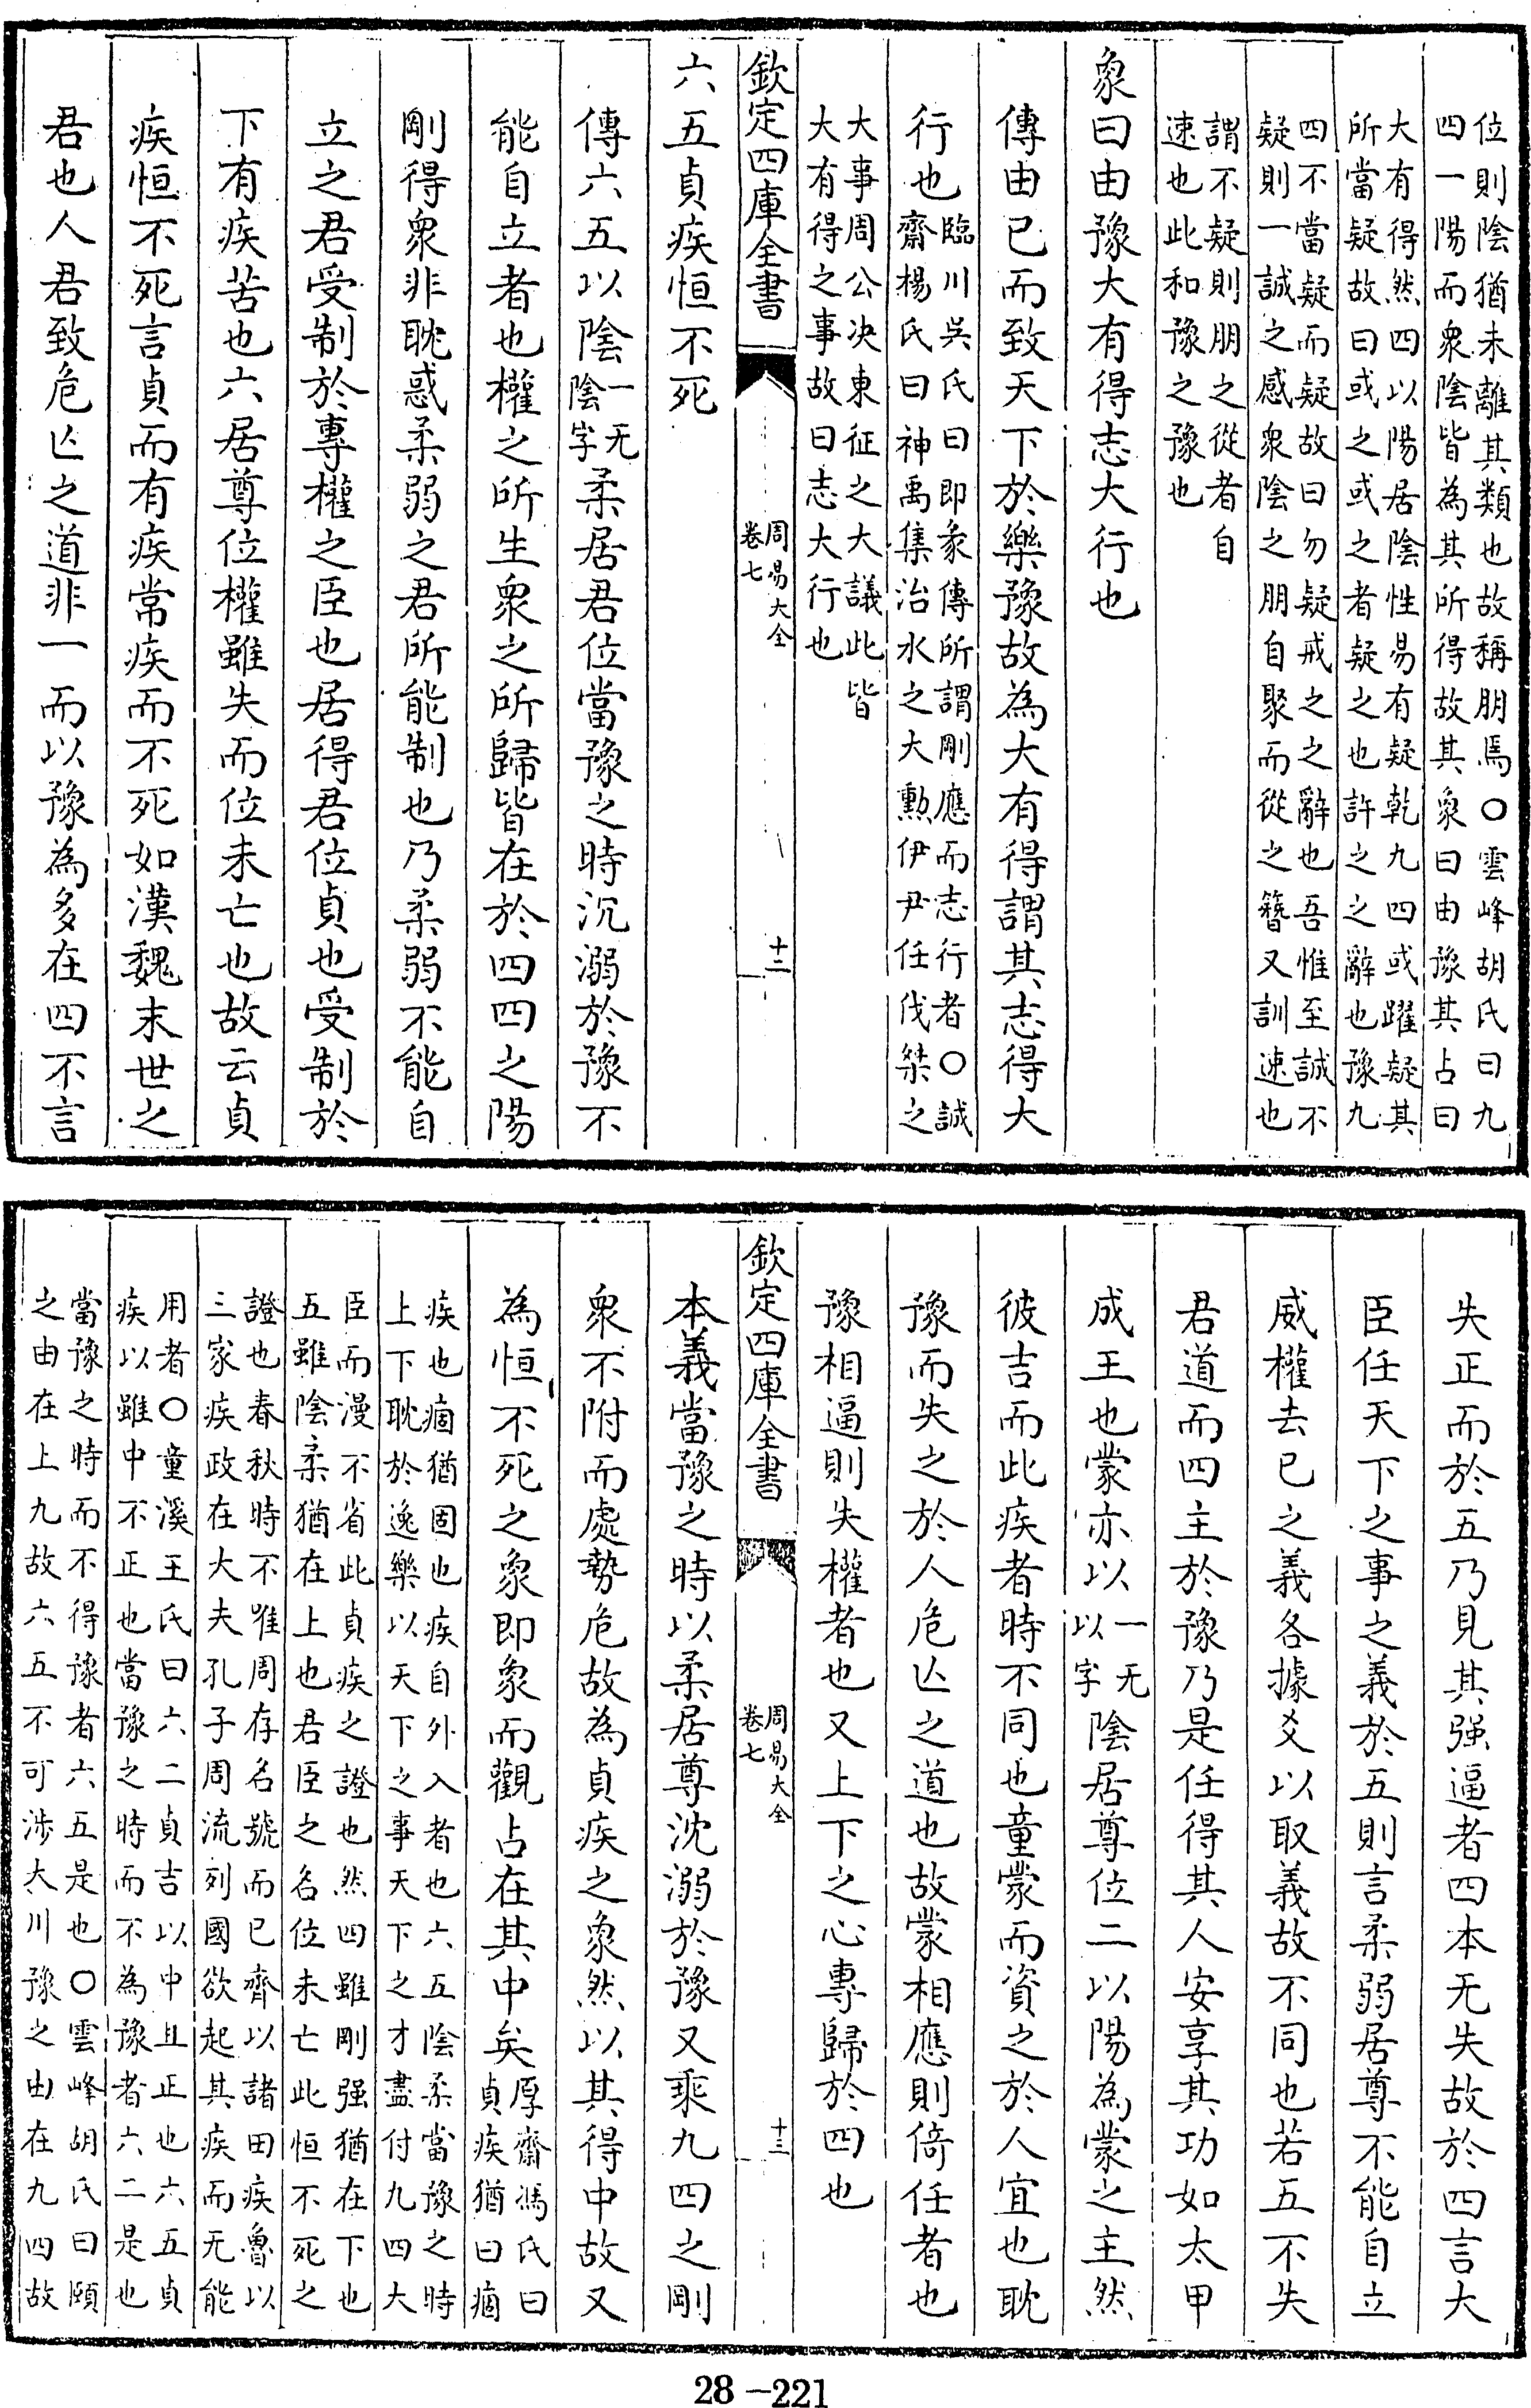 位則陰猶未離其類也故稱朋焉○雲峰胡氏曰九
四一陽而衆陰皆為其所得故其象曰由豫其占曰
大有得然四以陽居陰性易有疑乾九四或躍疑其
所當疑故曰或之或之者疑之也許之之辭也豫九
四不當疑而疑故曰勿疑戒之之辭也吾惟至誠不
疑則一誠之感衆陰之朋自聚而從之簪又訓速也
謂不疑則朋之從者自
速也此和豫之豫也
象曰由豫大有得志大行也
傳由已而致天下於樂豫故為大有得謂其志得大
行也
臨川吳氏曰即彖傳所謂剛應而志行者○誠
齋楊氏曰神禹集治水之大勲伊尹任伐桀之
大事周公决東征之大議此皆
大有得之事故曰志大行也
欽定四庫全書
周易大全
卷七
十二
六五貞疾恒不死
傳六五以陰
一无
陰字
柔居君位當豫之時沉溺於豫不
能自立者也權之所生衆之所歸皆在於四四之陽
剛得衆非耽惑柔弱之君所能制也乃柔弱不能自
立之君受制於專權之臣也居得君位貞也受制於
下有疾苦也六居尊位權雖失而位未亡也故云貞
疾恒不死言貞而有疾常疾而不死如漢魏末世之
君也人君致危亾之道非一而以豫為多在四不言
失正而於五乃見其强逼者四本无失故於四言大
臣任天下之事之義於五則言柔弱居尊不能自立
威權去已之義各據爻以取義故不同也若五不失
君道而四主於豫乃是任得其人安享其功如太甲
成王也蒙亦以
一无
以字
陰居尊位二以陽為蒙之主然
彼吉而此疾者時不同也童蒙而資之於人宜也耽
豫而失之於人危亾之道也故蒙相應則倚任者也
豫相逼則失權者也又上下之心專歸於四也
欽定四庫全書
周易大全
卷七
十三
本義當豫之時以柔居尊沈溺於豫又乘九四之剛
衆不附而處勢危故為貞疾之象然以其得中故又
為恒不死之象即象而觀占在其中矣
厚齋馮氏曰
貞疾猶曰痼
疾也痼猶固也疾自外入者也六五陰柔當豫之時
上下耽於逸樂以天下之事天下之才盡付九四大
臣而漫不省此貞疾之證也然四雖剛强猶在下也
五雖陰柔猶在上也君臣之名位未亡此恒不死之
證也春秋時不唯周存名號而已齊以諸田疾魯以
三家疾政在大夫孔子周流列國欲起其疾而无能
用者○童溪王氏曰六二貞吉以中且正也六五貞
疾以雖中不正也當豫之時而不為豫者六二是也
當豫之時而不得豫者六五是也○雲峰胡氏曰頤
之由在上九故六五不可涉大川豫之由在九四故
28-221